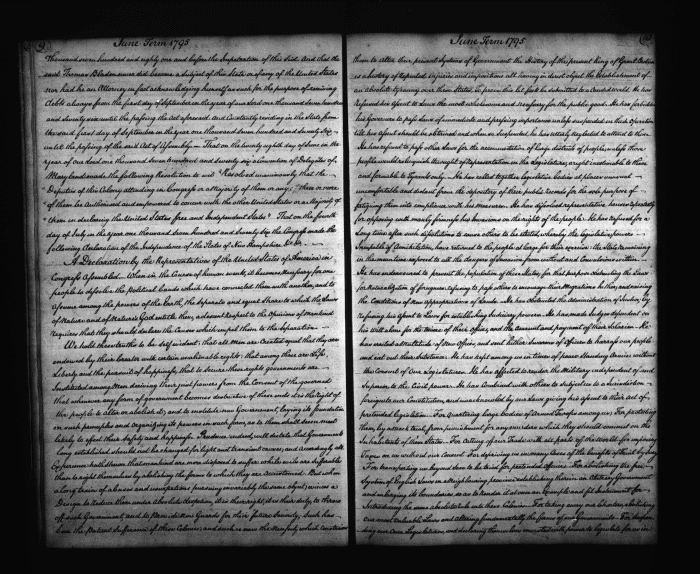 June Term 1795
Thousand seven hundred and eighty one and before the Impetration of this Writ. And that the
said Thomas Bladen never did become a Subject of this State or of any of the United States
nor had he an Attorney in fact acknowledging himself as such for the purpose of receiving
Debts always from the first day of September in the year of our Lord one thousand seven hundred
and seventy six until the passing of the Act aforesaid and Constantly residing in the State from
the said first day of September in the year one thousand seven hundred and seventy six
until the passing of the said Act of Assembly. That on the twenty eighth day of June in the
year of our Lord one thousand seven hundred and seventy six a Convention of Delegates of
Maryland made the following Resolution to wit "Resolved unanimously that the
"Deputies of this Colony attending in Congress or a Majority of them or any three or more
"of them be authorised and impowered to concur with the other United States or a Majority of
"them in declaring the United States free and Independent States". That on the fourth
day of July in the year one thousand seven hundred and seventy six the Congress made the
following Declaration of the Independence of the States of New Hampshire &c
A Declaration by the Representatives of the United States of America in
Congress Assembled. When in the Course of human events, it becomes necessary for one
people to dissolve the Political bands which have connected them with another, and to
assume among the powers of the Earth, the Separate and equal Station to which the Laws
of Nature and of Nature's God entitle them, a decent respect to the Opinions of Mankind
requires that they should declare the Causes which impel them to the Separation.
We hold these truths to be self evident; that all Men are Created equal that they are
endowed by their Creator with certain unalienable rights; that among these are Life
Liberty and the pursuit of happiness; that to secure these rights governments are
Instituted among Men deriving their just powers from the Consent of the governed
that whenever any form of government becomes destructive of these ends it is the Right of
the people to alter or abolish it; and to institute new Government, laying its foundation
on such principles and Organizing its powers in such form, as to them shall seem most
likely to effect their safety and happiness. Prudence, indeed, will dictate that Governments
long established should not be changed for light and transient causes; and accordingly all
Experience hath shewn that mankind are more disposed to suffer while evils are sufferable
than to right themselves by abolishing the forms to which they are accustomed. But when
a long train of abuses and usurpations pursuing invariably the same object, evinces a
Design to Reduce them under absolute despotism, it is their right, it is their duty, to throw
off such Government, and to provide New Guards for their future Security, Such has
been the Patient Sufferance of these Colonies; and such is now the Necessity which Constrains
June Term 1795
them to alter their present Systems of Government the History of the present King of Great Britain
is a history of repeated injuries and usurpations all having in direct object the Establishment of
an absolute tyranny over these States, to prove this let facts be submitted to a Candid world. He has
refused his Assent to Laws the most wholesome and necessary for the public good. He has forbidden
his Governors to pass Laws of immediate and pressing importance unless suspended in their Operation
till his Assent should be obtained and when so suspended he has utterly neglected to attend to them.
He has refused to pass other Laws for the accommodation of large districts of people, unless those
people would relinquish the right of Representation in the Legislature, a right inestimable to them
and formidable to Tyrants only. He has called together legislative bodies at places unusual
uncomfortable and distant from the depository of their public records for the sole purpose of
fatiguing them into compliance with his measures. He has dissolved representative houses repeatedly
for opposing with manly firmness his Invasions on the rights of the people. He has refused for a
Long time after such dissolutions to cause others to be elected, whereby the legislative powers
Incapable of Annihilation, have returned to the people at large for their exercise; the State remaining
in the meantime exposed to all the dangers of Invasion from without and Convulsions within.
He has endeavoured to prevent the population of these States; for that purpose obstructing the Laws
for Naturalization of foreigners refusing to pass others to encourage their Migrations hither, and raising
the Conditions of New appropriations of Lands. He has obstructed the administration of Justice, by
refusing his Assent to Laws for establishing Judiciary powers. He has made Judges dependent on
his will alone for the tenure of their offices, and the amount and payment of their Salaries. He
has erected a Multitude of New Offices, and sent hither Swarms of officers to harass our people
and eat out their Substance. He has kept among us in times of peace Standing Armies without
the Consent of our Legislatures. He has affected to render the Military independent of and
Superior to the Civil power. He has Combined with others to subject us to a Jurisdiction
foreign to our Constitution and unacknowledged by our Laws giving his assent to their Acts of
pretended legislation. For quartering large bodies of Armed Troops among us; For protecting
them, by a mock trial, from punishment for any murders which they should commit on the
Inhabitants of these States. For Cutting off our Trade with all parts of the world; for imposing
Taxes on us without our Consent. For depriving us in many cases of the benefits of trial by Jury
For transporting us beyond Seas to be tried for pretended offences. For abolishing the free
System of English Laws in a Neighbouring province establishing therein an Arbitrary Government
and enlarging its boundaries so as to render it at once an Example and fit Instrument for
introducing the same absolute rule into these Colonies. For taking away our Charters, abolishing
our most valuable Laws and altering fundamentally the forms of our Governments. For suspending
our own Legislatures, and declaring themselves invested with power to legislate for us in